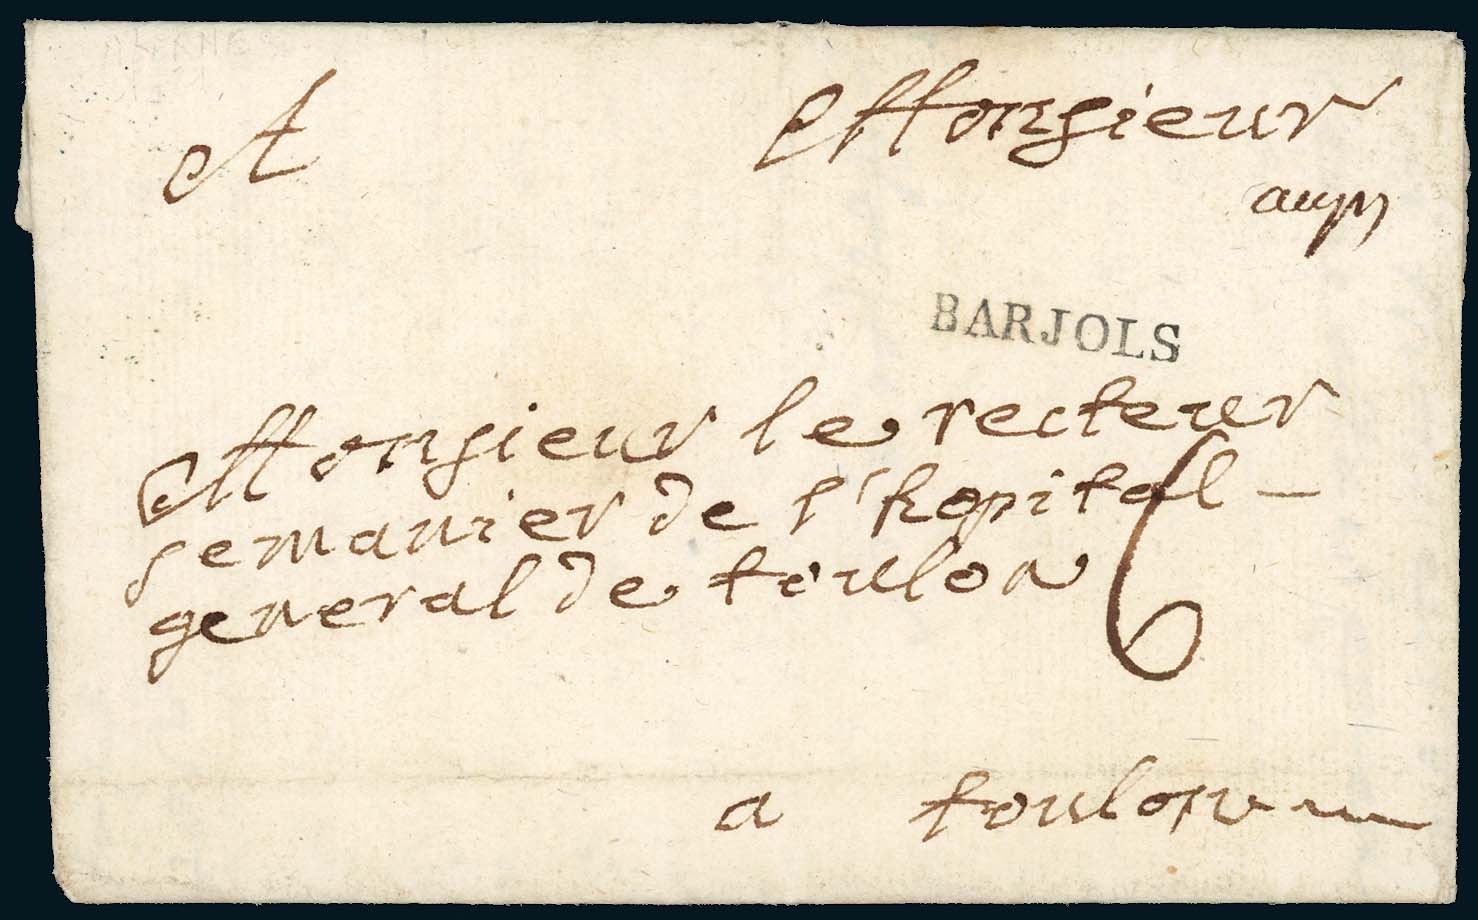 A Monsieur
aups
BARJOLS
Monsieur le recteur
semanier de l'hopital -
general de toulon
6
a toulon